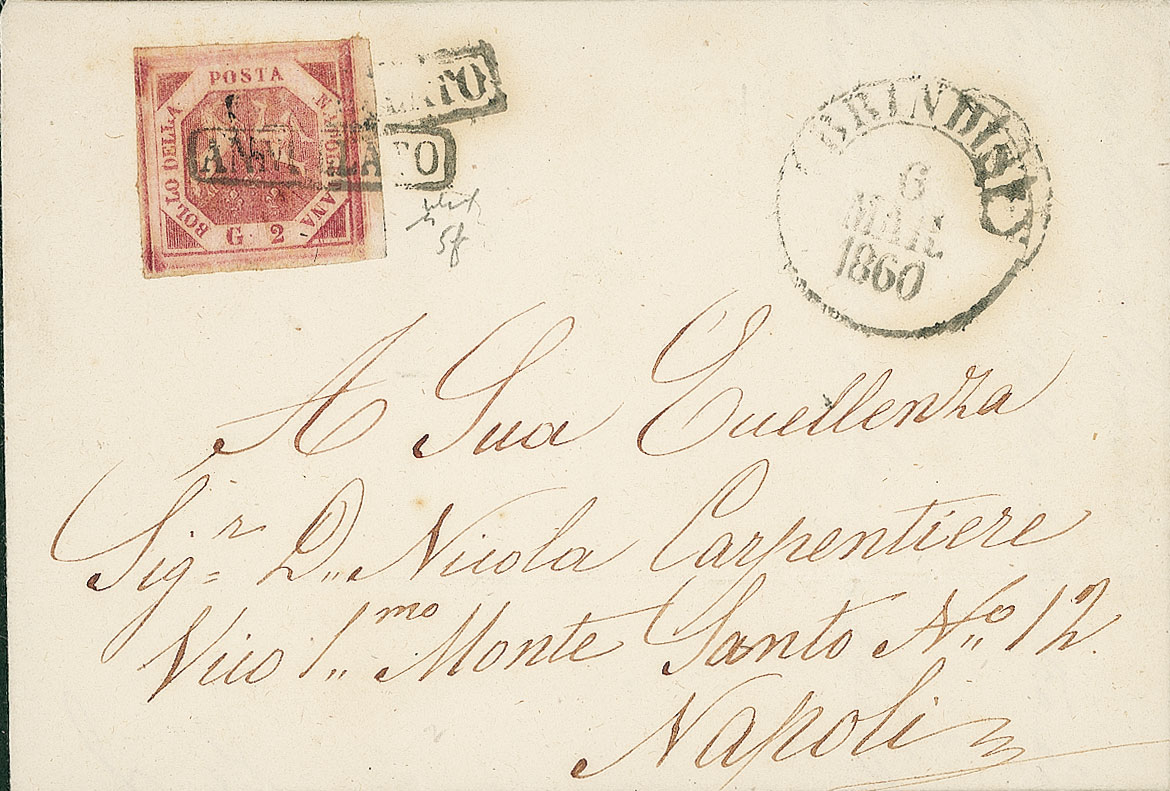 POSTA
NAPOLETANA
BOLLO DELLA
G 2
ANNULLATO
BRINDISI
6
MAR
1860
5f
A Sua Eccellenza
Sig.r D. Nicola Carpentiere
Vico 1.mo Monte Santo N.o 12.
Napoli